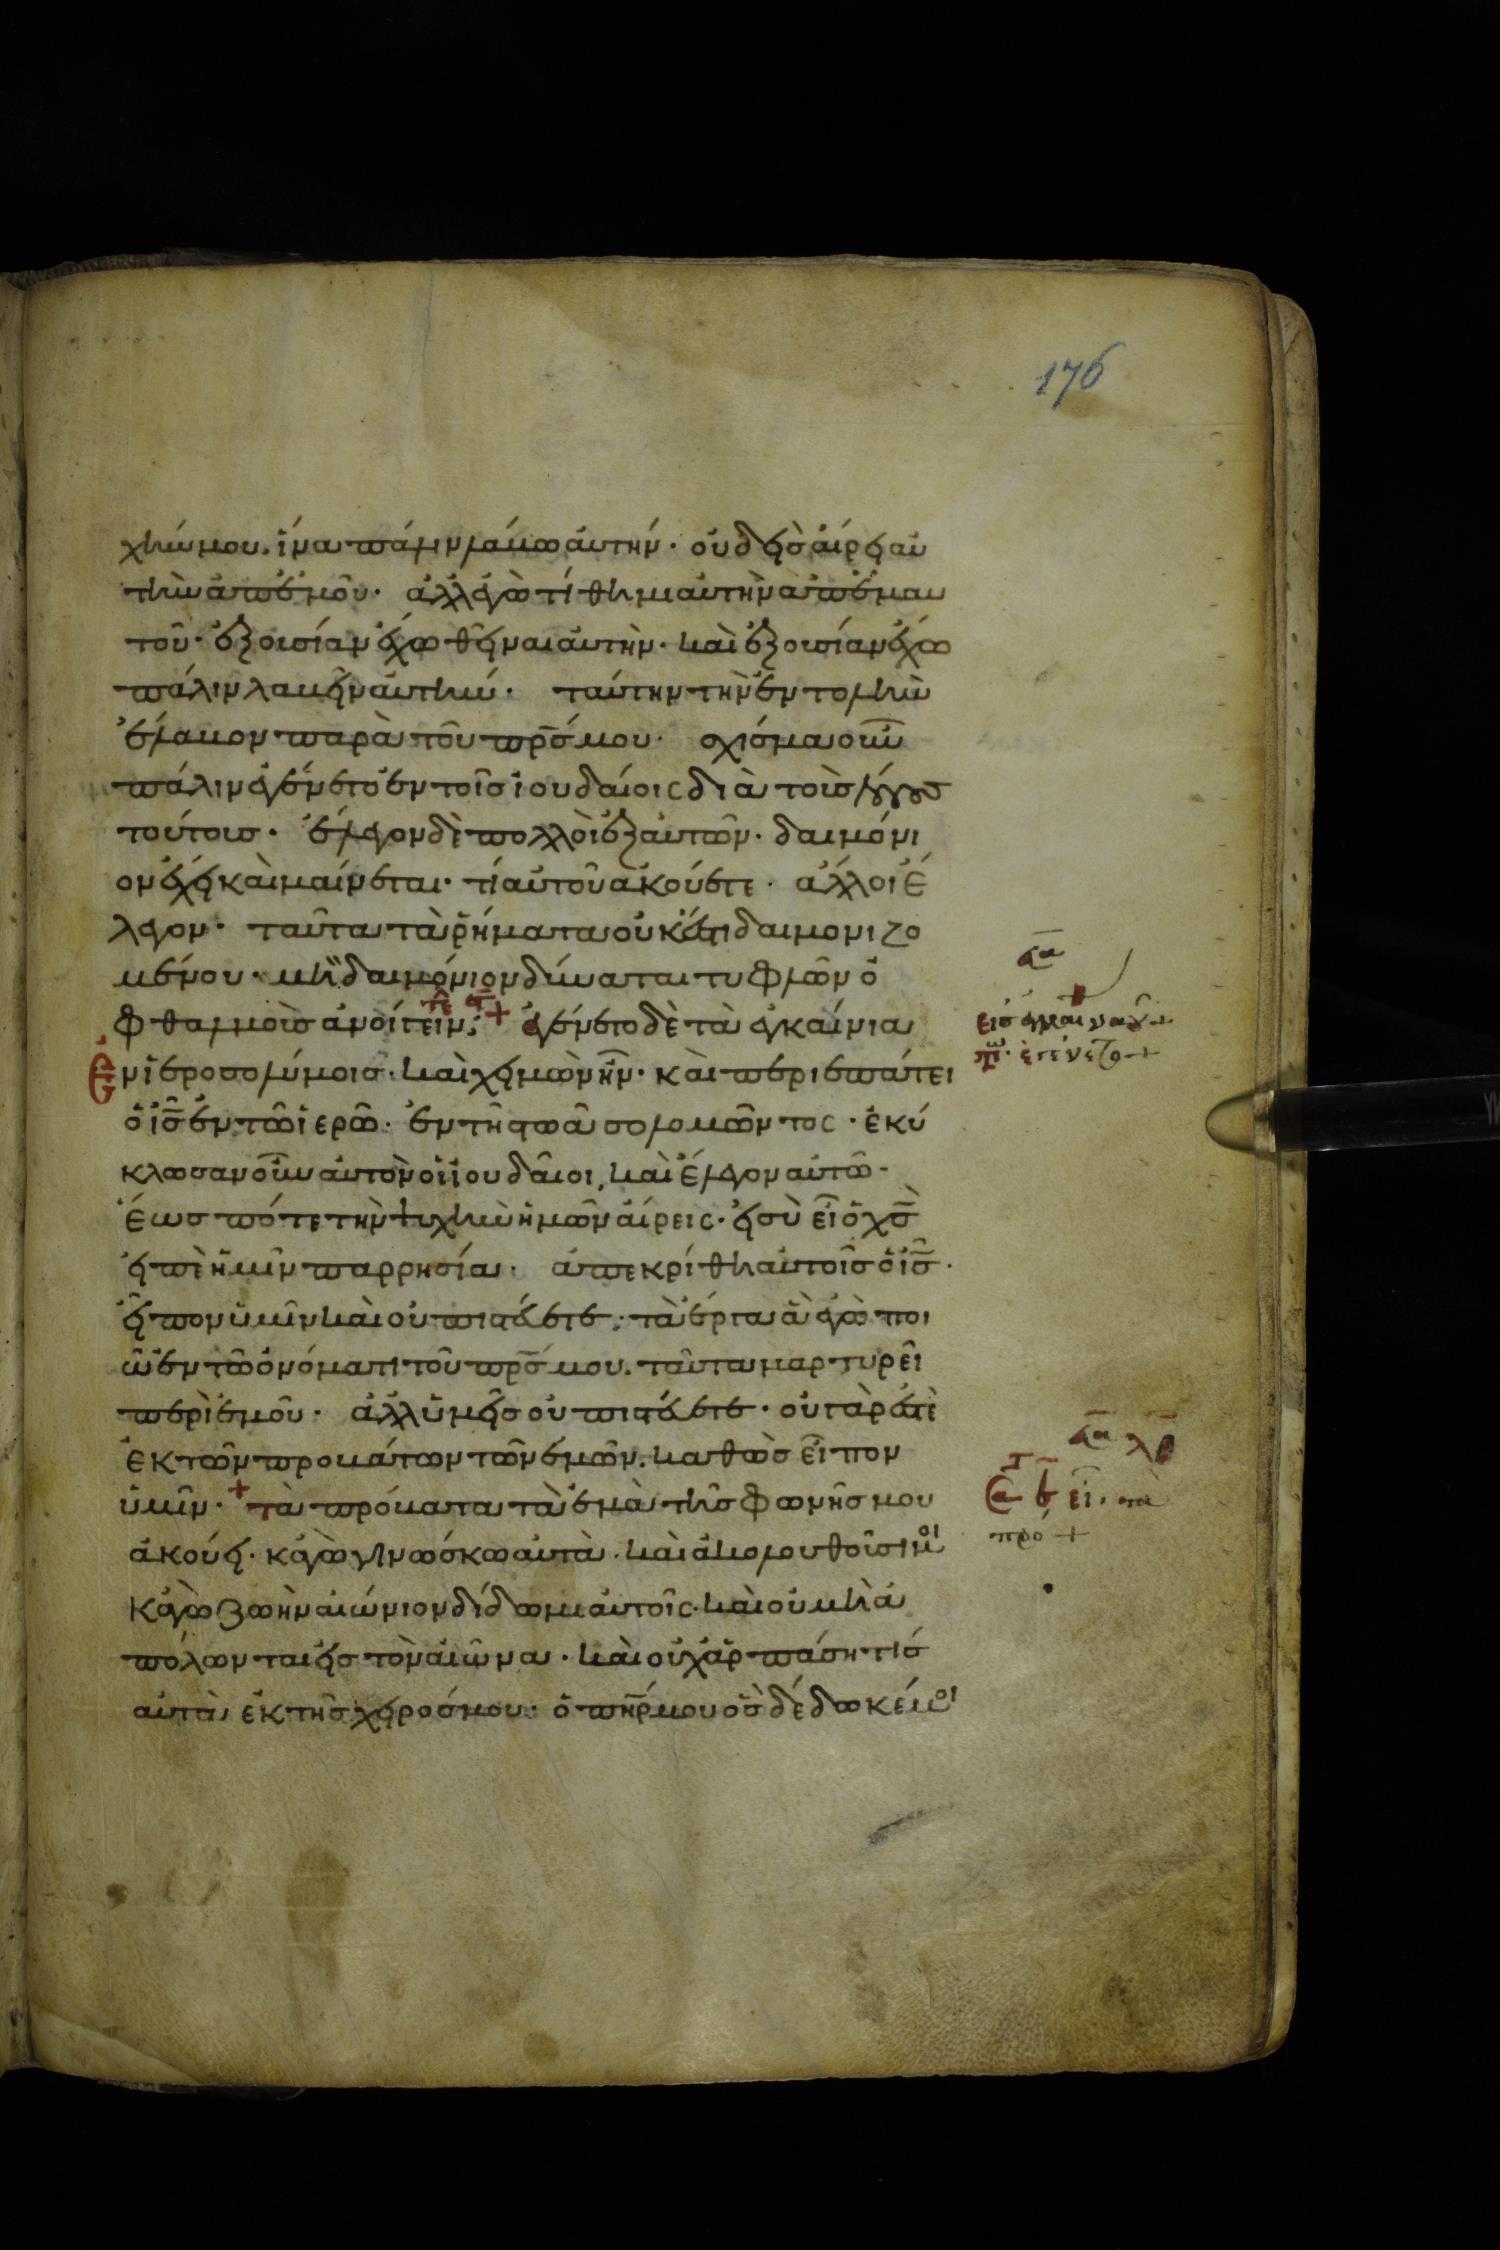 176
χήν μου. ἵνα πάλιν λάβω αὐτήν· οὐδεὶς αἴρει αὐ
τὴν ἀπ' ἐμοῦ· ἀλλ' ἐγὼ τίθημι αὐτὴν ἀπ' ἐμαυ
τοῦ· ἐξουσίαν ἔχω θεῖναι αὐτήν· καὶ ἐξουσίαν ἔχω
πάλιν λαβεῖν αὐτήν· ταύτην τὴν ἐντολὴν
ἔλαβον παρὰ τοῦ πρς μου· σχίσμα οὖν
πάλιν ἐγένετο ἐν τοῖς ἰουδαίοις διὰ τοὺς λόγους
τούτους· ἔλεγον δὲ πολλοὶ ἐξ αὐτῶν· δαιμόνι
ον ἔχει καὶ μαίνεται· τί αὐτοῦ ἀκούετε· ἄλλοι ἔ
λεγον· ταῦτα τὰ ῥήματα οὐκ ἔστι δαιμονιζο
μένου· μὴ δαιμόνιον δύναται τυφλῶν ὀ
φθαλμοὺς ἀνοίγειν; + ἐγένετο δὲ τὰ ἐγκαίνια
ἐν ἱεροσολύμοις· καὶ χειμὼν ἦν· καὶ περιεπάτει
ὁ ις ἐν τῶ ἱερῶ· ἐν τῆ στοᾶ σολομῶντος· ἐκύ
κλωσαν οὖν αὐτὸν οἱ ἰουδαῖοι, καὶ ἔλεγον αὐτῶ·
ἕως πότε τὴν ψυχὴν ἡμῶν αἴρεις· εἰ σὺ εἶ ὁ χς
εἰπὲ ἡμῖν παρρησία· ἀπεκρίθη αὐτοῖς ὁ ις·
εἶπον ὑμῖν καὶ οὐ πιστεύετε· τὰ ἔργα ἃ ἐγὼ ποι
ῶ ἐν τῶ ὀνόματι τοῦ πρς μου. ταῦτα μαρτυρεῖ
περὶ ἐμοῦ· ἀλλ' ὑμεῖς οὐ πιστεύετε· οὐ γάρ ἐστὲ
ἐκ τῶν προβάτων τῶν ἐμῶν. καθὼς εἶπον
ὑμῖν· + τὰ πρόβατα τὰ ἐμὰ τῆς φωνῆς μου
ἀκούει· κἀγὼ γινώσκω αὐτὰ· καὶ ἀκολουθοῦσί μοι
κἀγὼ ζωὴν αἰώνιον δίδωμι αὐτοῖς· καὶ οὐ μὴ ἀ
πόλωνται εἰς τὸν αἰῶνα· καὶ οὐχ ἁρπάσῃ τις
αὐτὰ ἐκ τῆς χειρός μου· ὁ πηρ μου ὃς δέδωκέ μοι